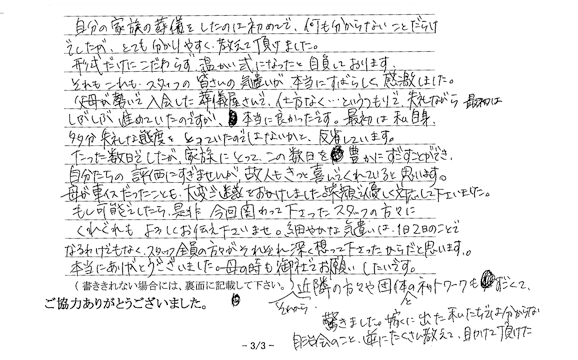 自分の家族の葬儀をしたのは初めてで、何も分からないことだらけ
でしたが、とても分かりやすく教えて頂けました。
形式だけにこだわらず、温かい式になったと自負しております。
それもこれも、スタッフの皆さんの気遣いが本当にすばらしく感激しました。
父母が勢いで入会した葬儀屋さんで、仕方なく…というつもりで、失礼ながら最初は
しぶしぶ進めていたのですが、本当に良かったです。最初は私自身、
多分失礼な態度をとっていたのではないかと、反省しています。
たった数日でしたが、家族にとって、この数日を豊かにすごすことができ、
自分たちの評価にすぎませんが、故人もきっと喜んでくれていると思います。
母が車イスだったことも、大変ご迷惑をおかけしました 優しく対応して下さいました。
もし可能でしたら、是非今回関わって下さったスタッフの方々に
くれぐれもよろしくお伝え下さいませ。細やかな気遣いは、1日2日のことで
なるわけでもなく、スタッフ全員の方々がそれぞれ深く想って下さったからだと思います。
本当にありがとうございました。母の時も御社でお願いしたいです。
(書ききれない場合には、裏面に記載して下さい。)
ご協力ありがとうございました。
それから 近隣の方々や団体とのネットワークも
驚きました。嫁に出た私たちでは分からない
自治会のこと、逆にたくさん教えて、助けて頂けた
- 3/3 -